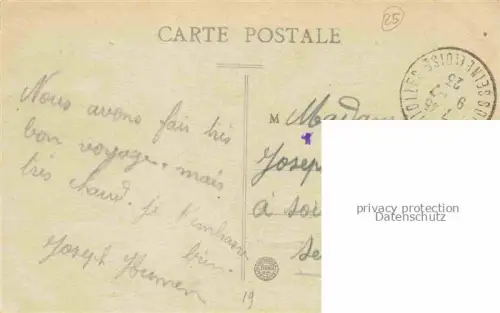 25
CARTE POSTALE
Nous avons fait très
bon voyage, mais
très chaud. je t'embrasse
bien.
Joseph
M Madame
Joseph
à soi
19
privacy protection
Datenschutz